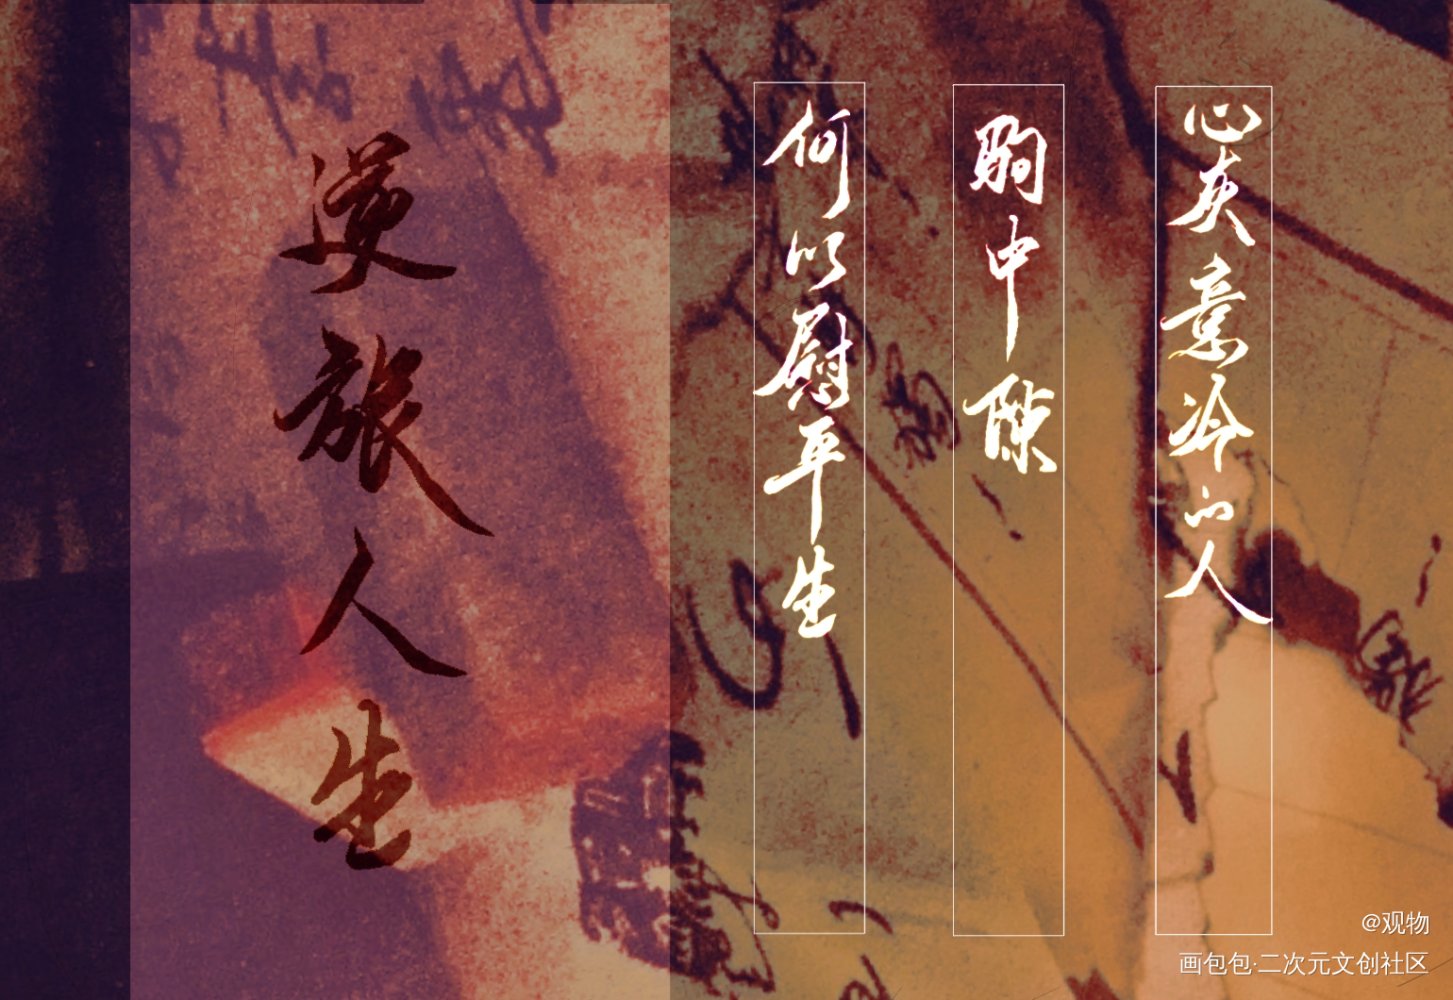 心灰意冷的人
驹中隙
何以慰平生
逆旅人生
@观物
画包包·二次元文创社区